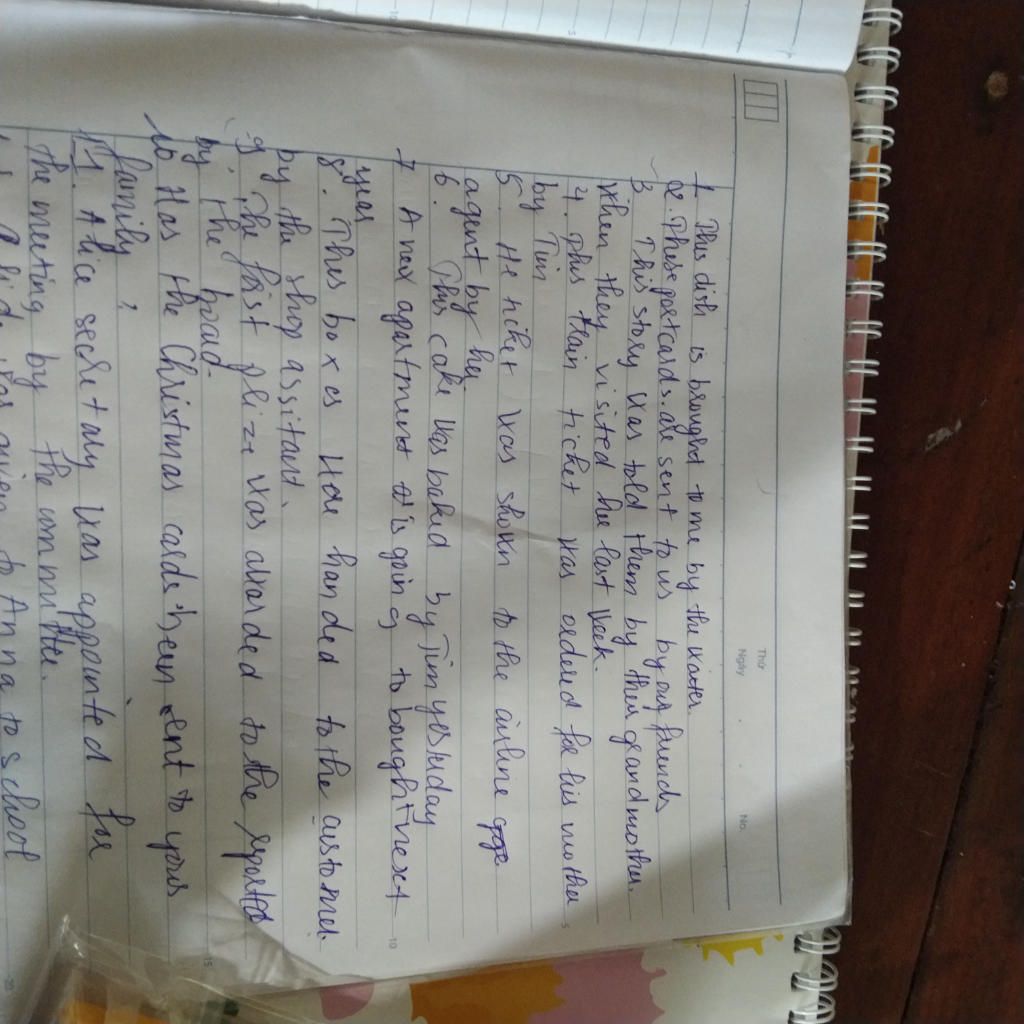 Thứ
Ngày
No.
1 This dish is brought to me by the waiter.
2. These postcards are sent to us by our friends
3 This story was told them by their grandmother.
when they visited her last week.
4. This train ticket was ordered for his mother
by Tim
5. He ticket was shown to the airline
agent by her
6. This cake was baked by Tim yesterday
7 A new apartment is going to bought next
year
8. This boxes handed to the customer.
by the shop assitant.
9 The first plize was awarded to the reporter
by, the board.
10 Has the Christmas cards been sent to your
family?
11. Alice secretary was appointed for
the meeting by the committee.
given to Anna to school
5
10
15
20